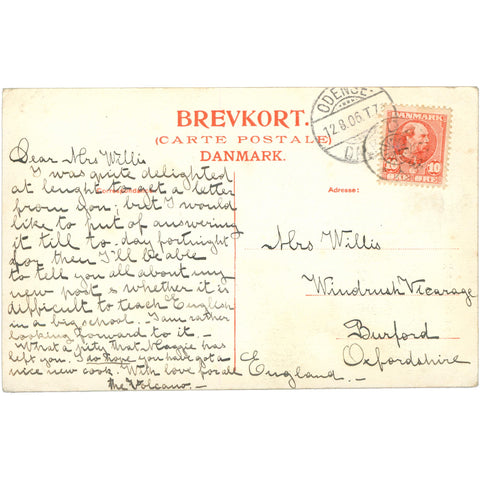 BREVKORT.
(CARTE POSTALE)
DANMARK.
ODENSE
12.8.06.T.7
DANMARK
10 10
ØRE
Correspondance:
Adresse:
Dear Mrs Willis
I was quite delighted
at lenght to get a letter
from you; but I would
like to put of answering
it till to-day fortnight
for then I'll be able
to tell you all about my
new post & whether it is
difficult to teach English
in a big school. I am rather
looking forward to it. –
What a pity that Maggie has
left you. I do hope you have got a
nice new cook. With love for all
The Volcano. –
Mrs Willis
Windrush Vicarage
Burford
Oxfordshire
England.